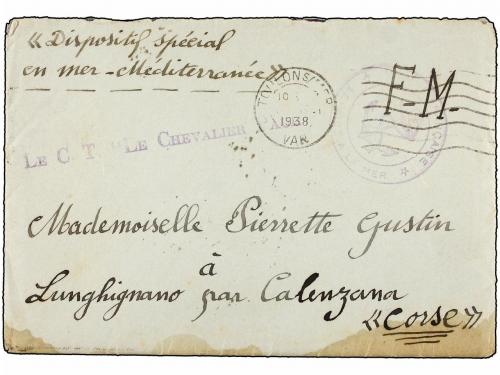 « Dispositif spécial
en mer - Méditerranée »
TOULON S/MER
1938
VAR
F. M.
A LA MER
LE C. T. "LE CHEVALIER
Mademoiselle Pierrette Gustin
à
Lunghignano par Calenzana
« Corse »